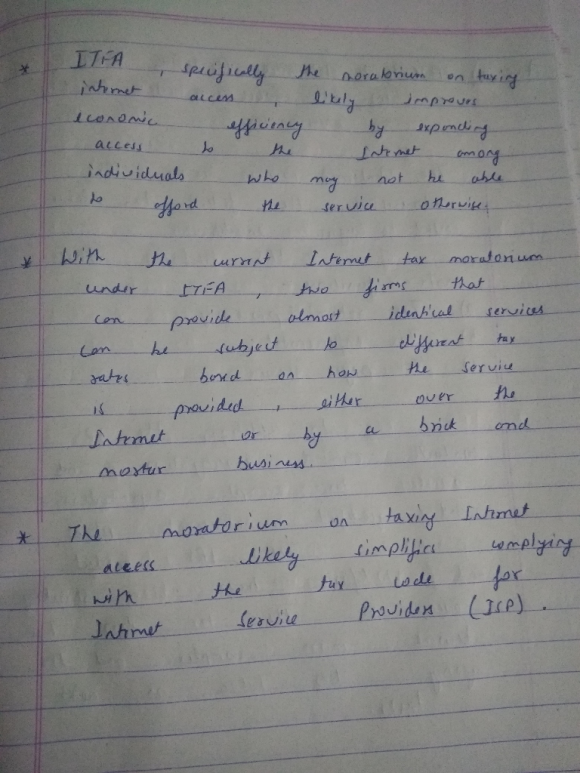 * ITFA, specifically the moratorium on taxing
internet access, likely improves
economic efficiency by expanding
access to the Internet among
individuals who may not be able
to afford the service otherwise.
* With the current Internet tax moratorium
under ITFA, two firms that
can provide almost identical services
can be subject to different tax
rates based on how the service
is provided, either over the
Internet or by a brick and
mortar business.
* The moratorium on taxing Internet
access likely simplifies complying
with the tax code for
Internet Service Providers (ISP).